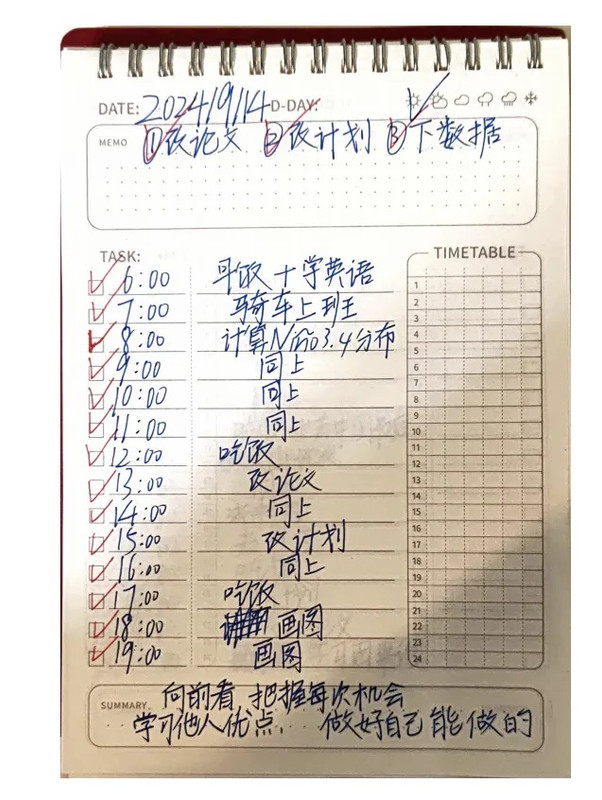 DATE: 2024/9/14 D-DAY:
MEMO ①改论文 ②改计划 ③下数据
TASK:
TIMETABLE
6:00 早饭+学英语
7:00 骑车上班
8:00 计算 3.4分布
9:00 同上
10:00 同上
11:00 同上
12:00 吃饭
13:00 改论文
14:00 同上
15:00 改计划
16:00 同上
17:00 吃饭
18:00 画图
19:00 画图
1
2
3
4
5
6
7
8
9
10
11
12
13
14
15
16
17
18
19
20
21
22
23
24
SUMMARY 向前看 把握每次机会
学习他人优点 做好自己能做的